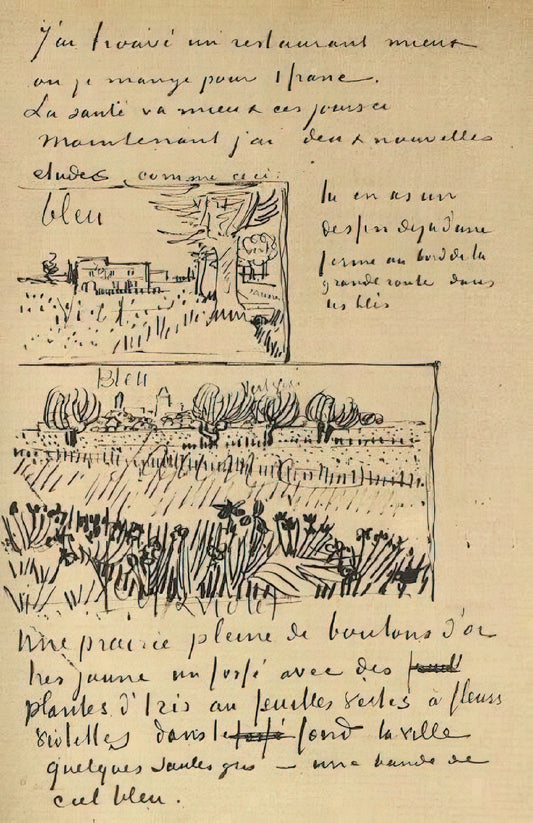 J'ai trouvé un restaurant mieux
ou je mange pour 1 franc.
La santé va mieux ces jours ci
Maintenant j'ai deux nouvelles
etudes comme ceci
bleu
tu en as un
dessin deja d'une
ferme au bord de la
grande route dans
les blés
Bleu
Violet
Une prairie pleine de boutons d'or
tres jaune un fossé avec des
plantes d'Iris au feuilles vertes à fleurs
violettes dans le fossé fond la ville
quelques saules gris – une bande de
ciel bleu.